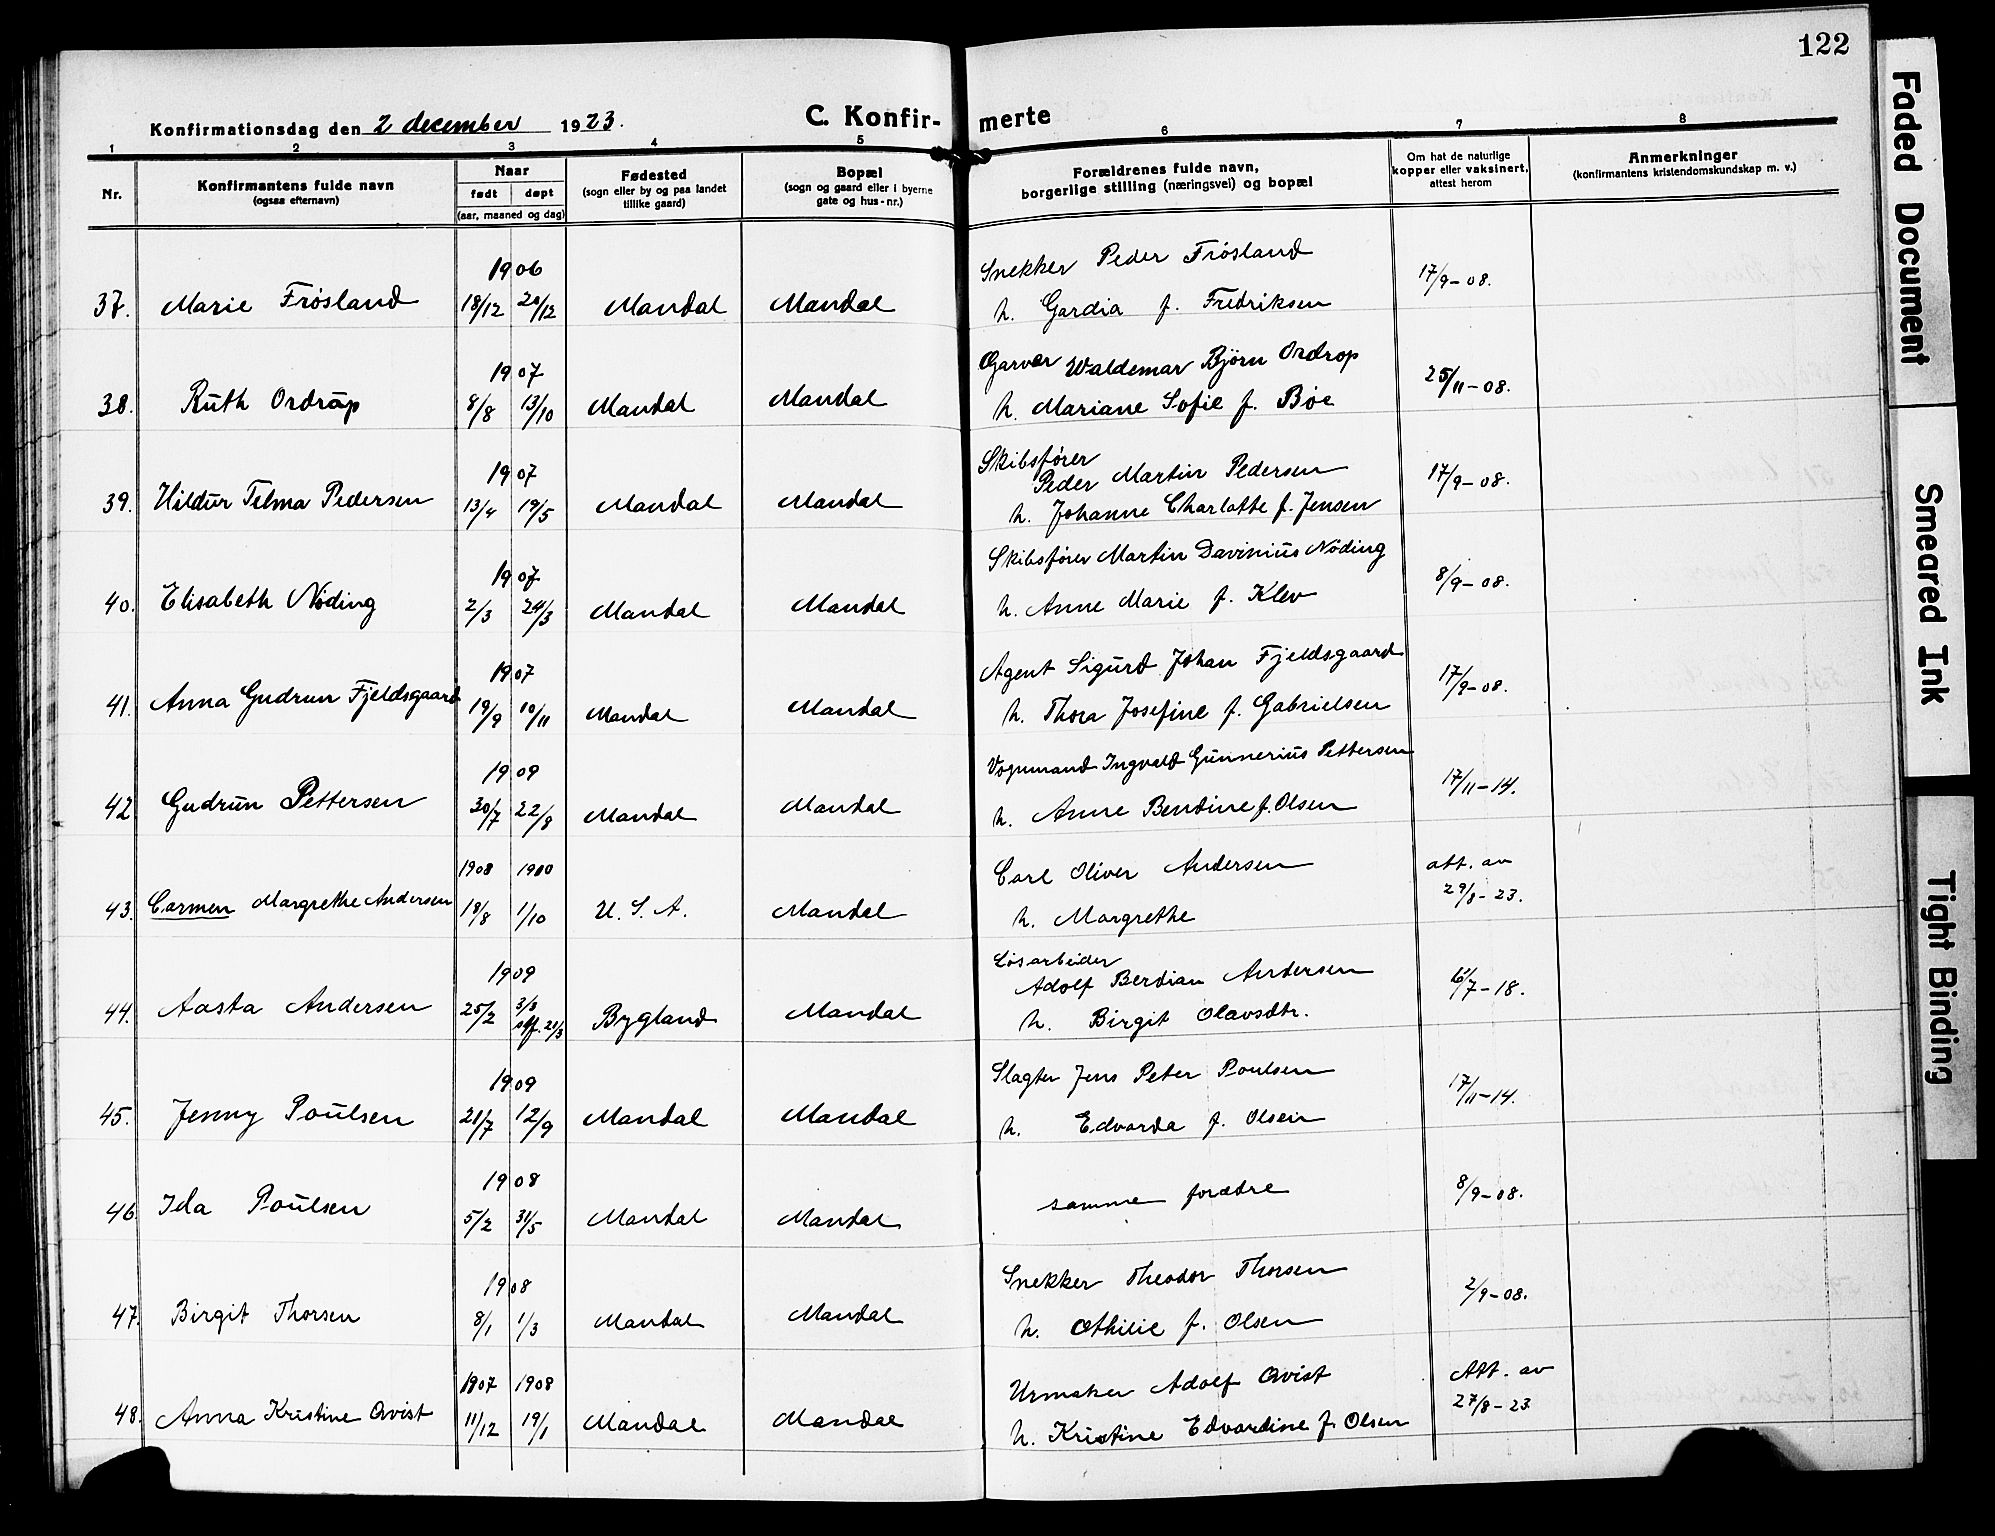 122
Konfirmationsdag den 2 december 1923.
C. Konfir- merte
1 2 3 4 5 6 7 8
Nr.
Konfirmantens fulde navn
(ogsaa efternavn)
Naar
født døpt
(aar, maaned og dag)
Fødested
(sogn eller by og paa landet
tillike gaard)
Bopæl
(sogn og gaard eller i byerne
gate og hus-nr.)
Forældrenes fulde navn,
borgerlige stilling (næringsvei) og bopæl
Om hat de naturlige
kopper eller vaksinert,
attest herom
Anmerkninger
(konfirmantens kristendomskundskap m. v.)
1906 Snekker Peder Frøsland
37. Marie Frøsland 18/12 20/12 Mandal Mandal h. Gardia f. Fredriksen 17/9-08.
1907 Garver Waldemar Bjørn Ordrop
38. Ruth Ordrup 8/8 13/10 Mandal Mandal h. Mariane Sofie f. Bøe 25/11-08.
1907 Skibsfører
Peder Martin Pedersen 17/9-08.
39. Hildur Telma Pedersen 13/4 19/5 Mandal Mandal h. Johanne Charlotte f. Jensen
1907 Skibsfører Martin Davinius Nøding
40. Elisabeth Nøding 2/3 24/3 Mandal Mandal h. Anne Marie f. Klev 8/9-08.
1907 Agent Sigurd Johan Fjeldsgaard
41. Anna Gudrun Fjeldsgaard 19/9 10/11 Mandal Mandal h. Thora Josefine f. Gabrielsen 17/9-08.
1909 Vognmand Ingvald Gunnerius Pettersen
42 Gudrun Pettersen 30/7 22/8 Mandal Mandal h. Anne Bendine f. Olsen 17/11-14.
1908 1900 Carl Oliver Andersen att. av
43. Carmen Margrethe Andersen 18/8 1/10 U. S. A. Mandal h. Margrethe 29/8-23.
1909 Løsarbeider
Adolf Berdian Andersen
44. Aasta Andersen 25/2 3/3 stf. 21/3 Bygland Mandal h. Birgit Olavsdtr. /7-18.
1909 Slagter Jens Peter Poulsen
45. Jenny Poulsen 21/7 12/9 Mandal Mandal h. Edvarda f. Olsen 17/11-14.
1908
46. Ida Poulsen 5/2 31/5 Mandal Mandal samme forældre 8/9-08.
1908 Snekker Theodor Thorsen
47. Birgit Thorsen 8/1 1/3 Mandal Mandal h. Othilie f. Olsen 2/9-08.
1907 1908 Urmaker Adolf Qvist Att. av
48. Anna Kristine Qvist 11/12 19/1 Mandal Mandal h. Kristine Edvardine f. Olsen 27/8-23
Faded Document
Smeared Ink
Tight Binding